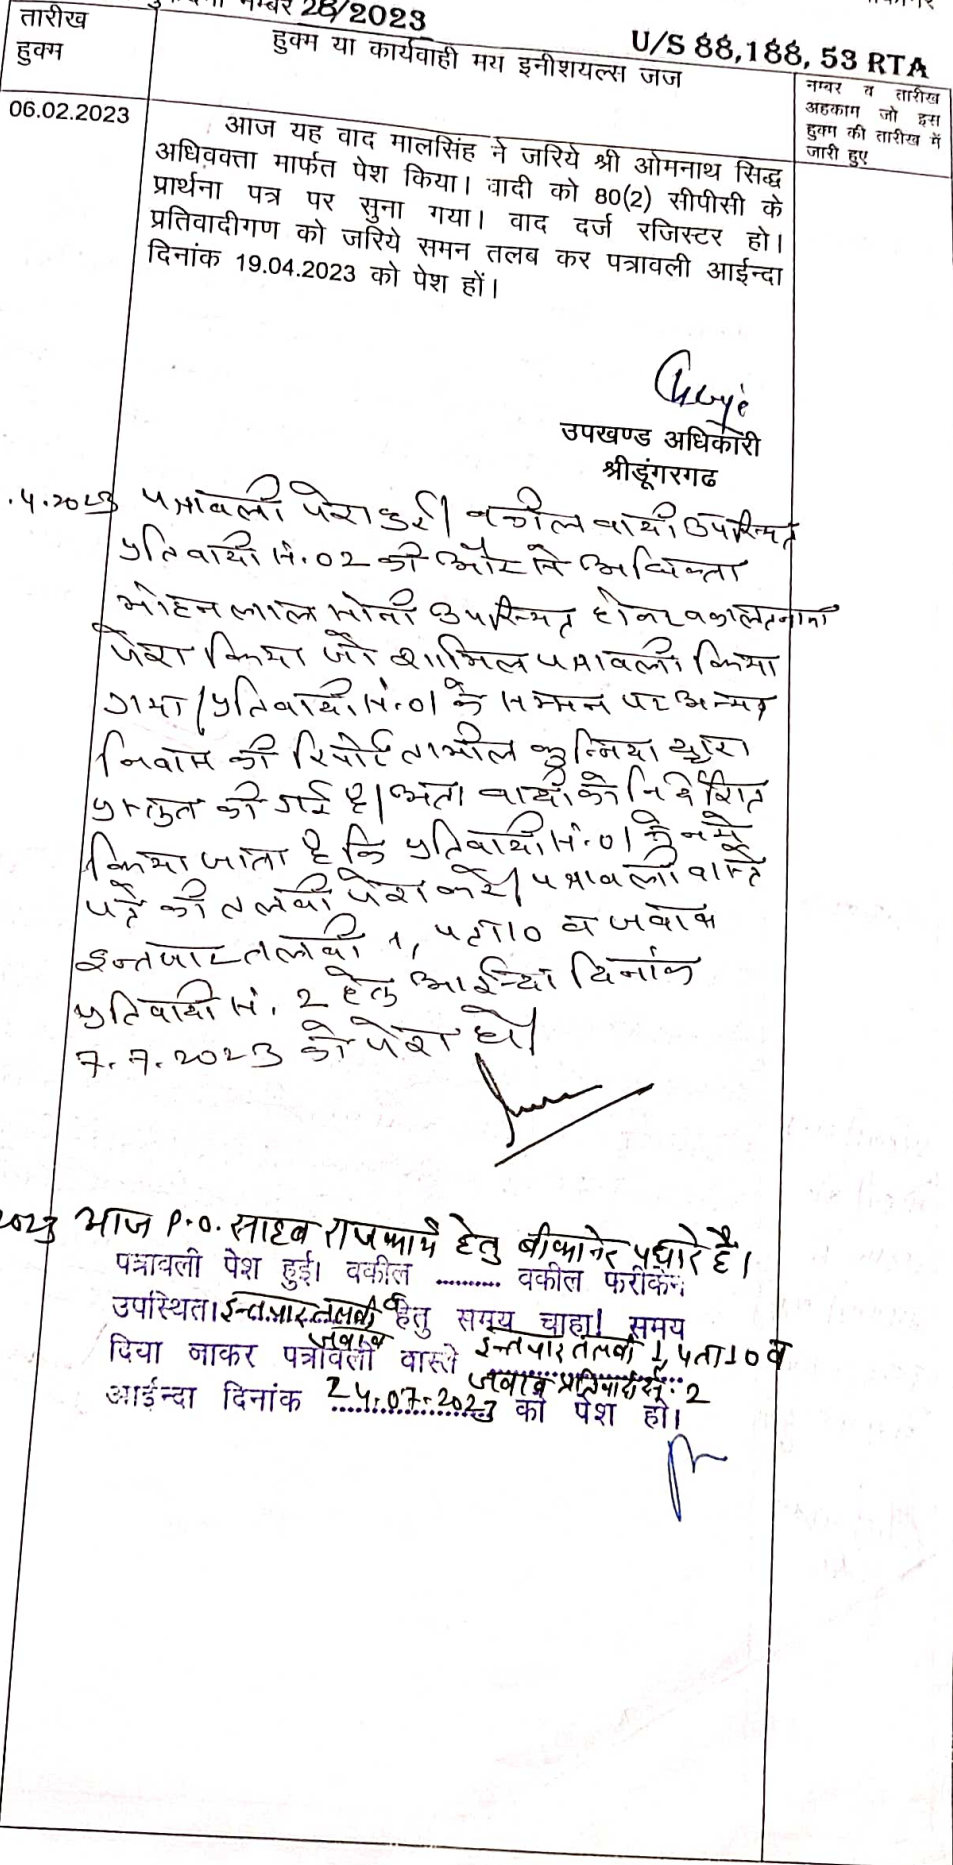 नम्बर 28/2023
U/S 88,188, 53 RTA
तारीख
हुक्म
हुक्म या कार्यवाही मय इनीशयल्स जज
नम्बर व तारीख
अहकाम जो इस
हुक्म की तारीख में
जारी हुए
06.02.2023
आज यह वाद मालसिंह ने जरिये श्री ओमनाथ सिद्ध
अधिवक्ता मार्फत पेश किया। वादी को 80(2) सीपीसी के
प्रार्थना पत्र पर सुना गया। वाद दर्ज रजिस्टर हो।
प्रतिवादीगण को जरिये समन तलब कर पत्रावली आईन्दा
दिनांक 19.04.2023 को पेश हों।
उपखण्ड अधिकारी
श्रीडूंगरगढ
.4.2023 पत्रावली पेश हुई। वकील वादी उपस्थित
प्रतिवादी सं. 02 की और से अधिवक्ता
मोहनलाल सोनी उपस्थित होकर वकालतनामा
पेश किया जो शामिल पत्रावली किया
गया। प्रतिवादी सं. 01 के सम्मन पर अन्यत्र
निवास की रिपोर्ट तामील कुनिन्दा द्वारा
प्रस्तुत की गई है। अतः वादी को निर्देशित
किया जाता है कि प्रतिवादी सं. 01 के नये
पते की तलबी पेश करे। पत्रावली वास्ते
इन्तजार तलबी 1, पता 10 व जवाब
प्रतिवादी सं. 2 हेतु आईन्दा दिनांक
7.7.2023 को पेश हो।
2023 आज P.O. साहब राजकार्य हेतु बीकानेर पधारे है।
पत्रावली पेश हुई। वकील ........... वकील फरीकेन
उपस्थित। इन्तजार तलबी व जवाब हेतु समय चाहा! समय
दिया जाकर पत्रावली वास्ते इन्तजार तलबी 1, पता 10 व
जवाब प्रतिवादी सं. 2
आईन्दा दिनांक 24.07.2023 को पेश हो।